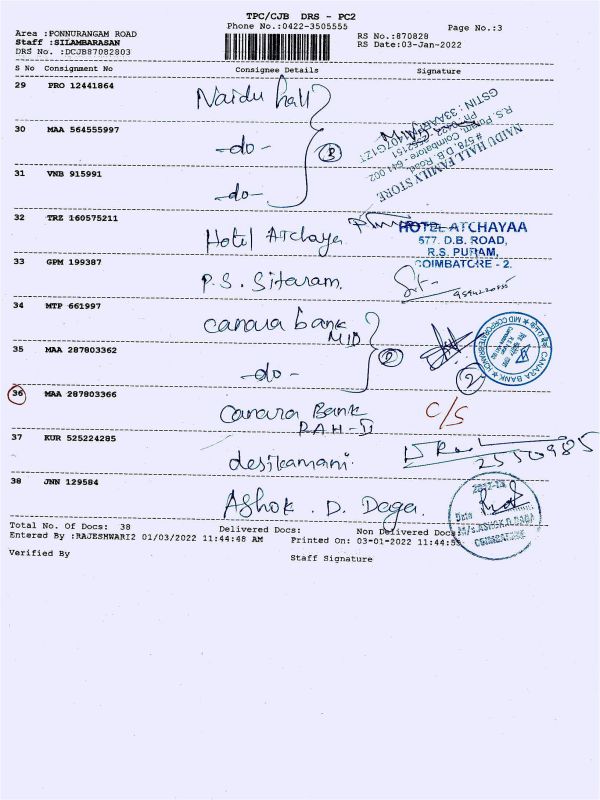 TPC/CJB DRS - PC2
Phone No.:0422-3505555
Page No.:3
Area :PONNURANGAM ROAD
Staff :SILAMBARASAN
DRS No. :DCJB87082803
RS No.:870828
RS Date:03-Jan-2022
S No Consignment No Consignee Details Signature
29 PRO 12441864 Naidu hall
30 MAA 564555997 -do-
31 VNB 915991 -do-
NAIDU HALL FAMILY STORE
# 578, D.B. Road,
R.S. Puram, Coimbatore - 641 002
32 TRZ 160575211 Hotel Atchaya
HOTEL ATCHAYAA
577. D.B. ROAD,
R.S. PURAM,
COIMBATORE - 2.
33 GPM 199387 P.S. Sitaram.
34 MTP 661997 Canara bank
MID
35 MAA 287803362 -do-
2
CANARA BANK
36 MAA 287803366 Canara Bank C/S
37 KUR 525224285 desikamani. 2550985
38 JNN 129584 Ashok . D. Daga.
M/s.ASHOK.D.DAGA
COIMBATORE
Total No. Of Docs: 38 Delivered Docs: Non Delivered Docs:
Entered By :RAJESHWARI2 01/03/2022 11:44:48 AM Printed On: 03-01-2022 11:44:55
Verified By Staff Signature